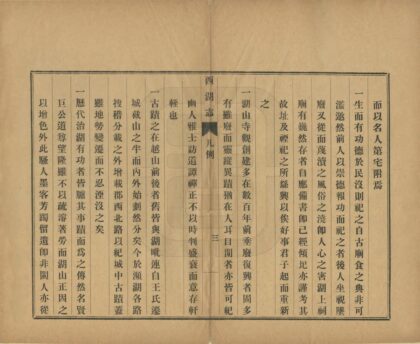 而以名人第宅附焉
一生而有功德於民沒則祀之自古廟食之典非可
濫邀然前人以崇德報功而祀之者後人坐視墜
廢又從而殘瀆之風俗之澆卽人心之害湖上祠
廟有巍然存者自應備書卽已經傾圮亦謹考其
故址及禋祀之所繇興以俟好事君子起而重新
之
一湖山寺觀創建多在數百年前乘廢復興者固多
有雖廢而靈蹤異蹟猶在人耳目間者亦皆可紀
西湖志
凡例
三
幽人雅士訪道譚禪正不以時判盛衰而意存軒
輊也
一古蹟之在越山前後者舊皆與湖毗連自王氏濠
城截山之半而內外始劃然分矣今於瀕湖各路
搜稽分載之外增載郡西北路以紀城中古蹟蓋
雖地勢變遷而不忍湮沒之矣
一歷代治湖有功者皆臚其事蹟而爲之傳然名賢
巨公道尊望隆雖不以疏濬著勞而湖山正因之
以增色外此騷人墨客芳躅留遺卽非閩人亦從